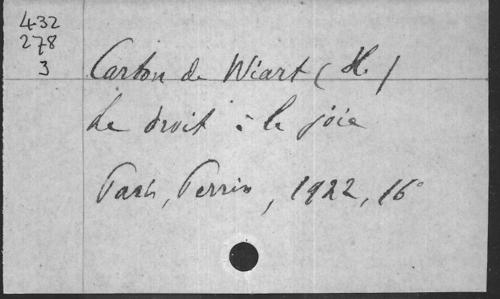 432
278
3
Carton de Wiart (H.)
Le droit à la joie
Paris, Perrin, 1922, 16°